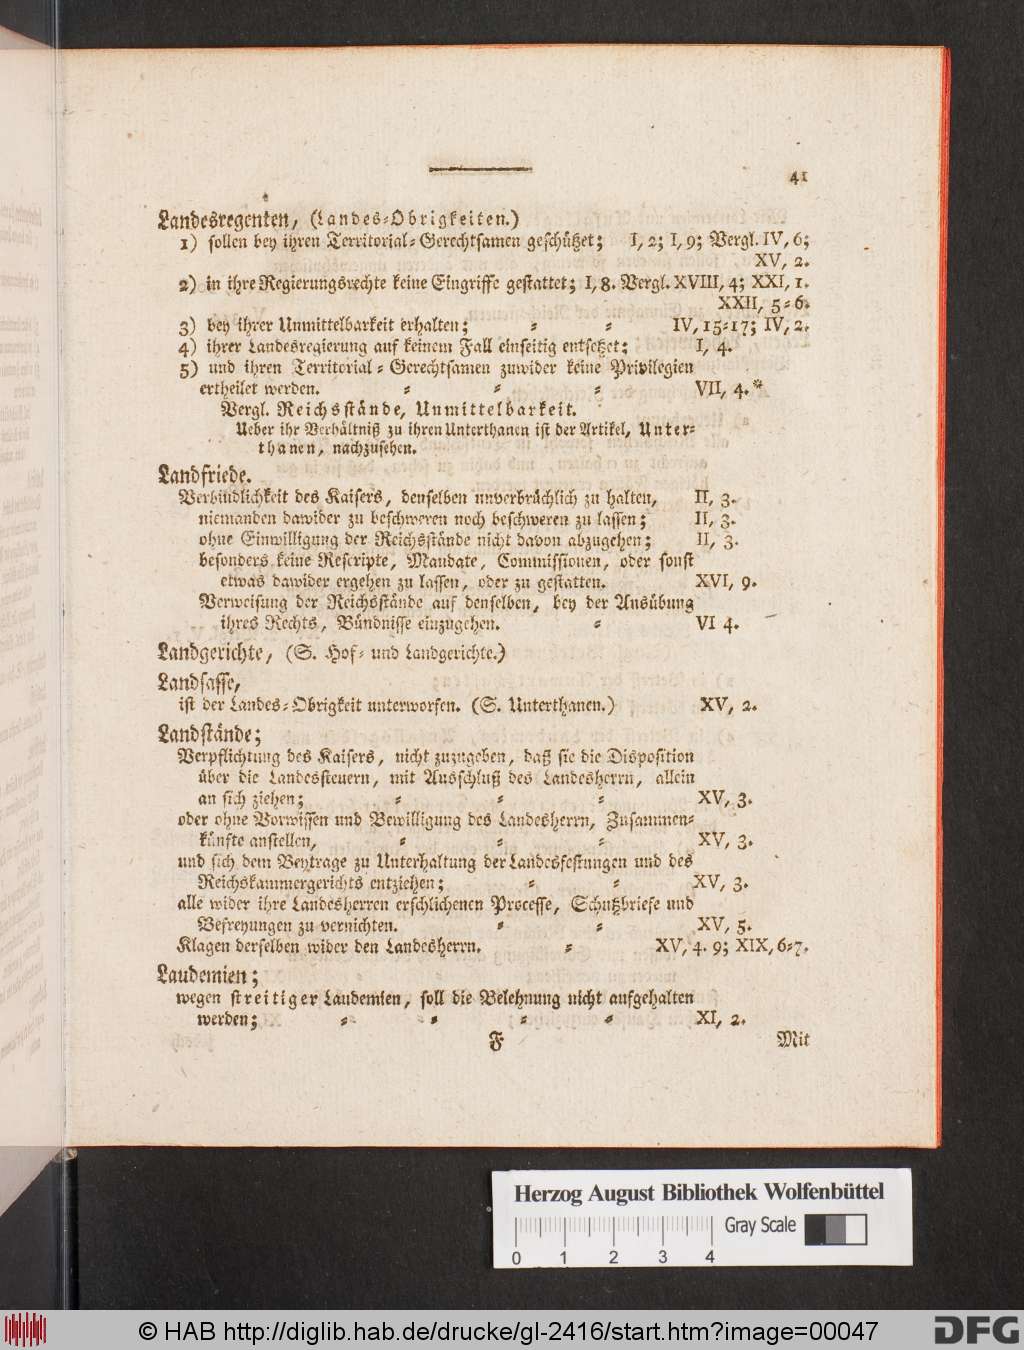 41
Landesregenten, (Landes-Obrigkeiten.)
1) sollen bey ihren Territorial-Gerechtsamen geschützet; I, 2; I, 9; Vergl. IV, 6;
XV, 2.
2) in ihre Regierungsrechte keine Eingriffe gestattet; I, 8. Vergl. XVIII, 4; XXI, 1.
XXII, 5-6.
3) bey ihrer Unmittelbarkeit erhalten; - - IV, 15-17; IV, 2.
4) ihrer Landesregierung auf keinem Fall einseitig entsetzet; I, 4.
5) und ihren Territorial-Gerechtsamen zuwider keine Privilegien
ertheilet werden. - - - VII, 4.*
Vergl. Reichsstände, Unmittelbarkeit.
Ueber ihr Verhältniß zu ihren Unterthanen ist der Artikel, Unter-
thanen, nachzusehen.
Landfriede.
Verbindlichkeit des Kaisers, denselben unverbrüchlich zu halten, II, 3.
niemanden dawider zu beschweren noch beschweren zu lassen; II, 3.
ohne Einwilligung der Reichsstände nicht davon abzugehen; II, 3.
besonders keine Rescripte, Mandate, Commissionen, oder sonst
etwas dawider ergehen zu lassen, oder zu gestatten. XVI, 9.
Verweisung der Reichsstände auf denselben, bey der Ausübung
ihres Rechts, Bündnisse einzugehen. - VI 4.
Landgerichte, (S. Hof- und Landgerichte.)
Landsasse,
ist der Landes-Obrigkeit unterworfen. (S. Unterthanen.) XV, 2.
Landstände;
Verpflichtung des Kaisers, nicht zuzugeben, daß sie die Disposition
über die Landessteuern, mit Ausschluß des Landesherrn, allein
an sich ziehen; - - - XV, 3.
oder ohne Vorwissen und Bewilligung des Landesherrn, Zusammen-
künfte anstellen, - - - XV, 3.
und sich dem Beytrage zu Unterhaltung der Landesfestungen und des
Reichskammergerichts entziehen; - - XV, 3.
alle wider ihre Landesherren erschlichenen Processe, Schutzbriefe und
Befreyungen zu vernichten. - - XV, 5.
Klagen derselben wider den Landesherrn. - XV, 4. 9; XIX, 6-7.
Laudemien;
wegen streitiger Laudemien, soll die Belehnung nicht aufgehalten
werden; - - - - XI, 2.
F Mit
Herzog August Bibliothek Wolfenbüttel
Gray Scale
0 1 2 3 4
© HAB http://diglib.hab.de/drucke/gl-2416/start.htm?image=00047
DFG